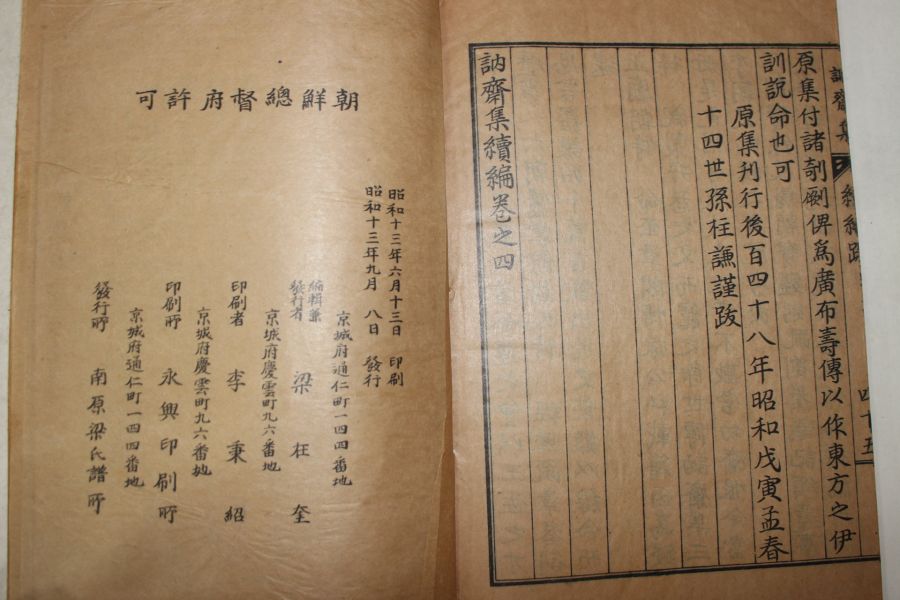 訥齋集
續編跋
四十五
原集付諸剞劂俾爲廣布壽傳以作東方之伊
訓說命也可
原集刊行後百四十八年昭和戊寅孟春
十四世孫柱謙謹跋
訥齋集續編卷之四
朝鮮總督府許可
昭和十三年六月十三日 印刷
昭和十三年九月 八日 發行
京城府通仁町一四四番地
編輯兼發行者 梁柱奎
京城府慶雲町九六番地
印刷者 李秉紹
京城府慶雲町九六番地
印刷所 永興印刷所
京城府通仁町一四四番地
發行所 南原梁氏譜所